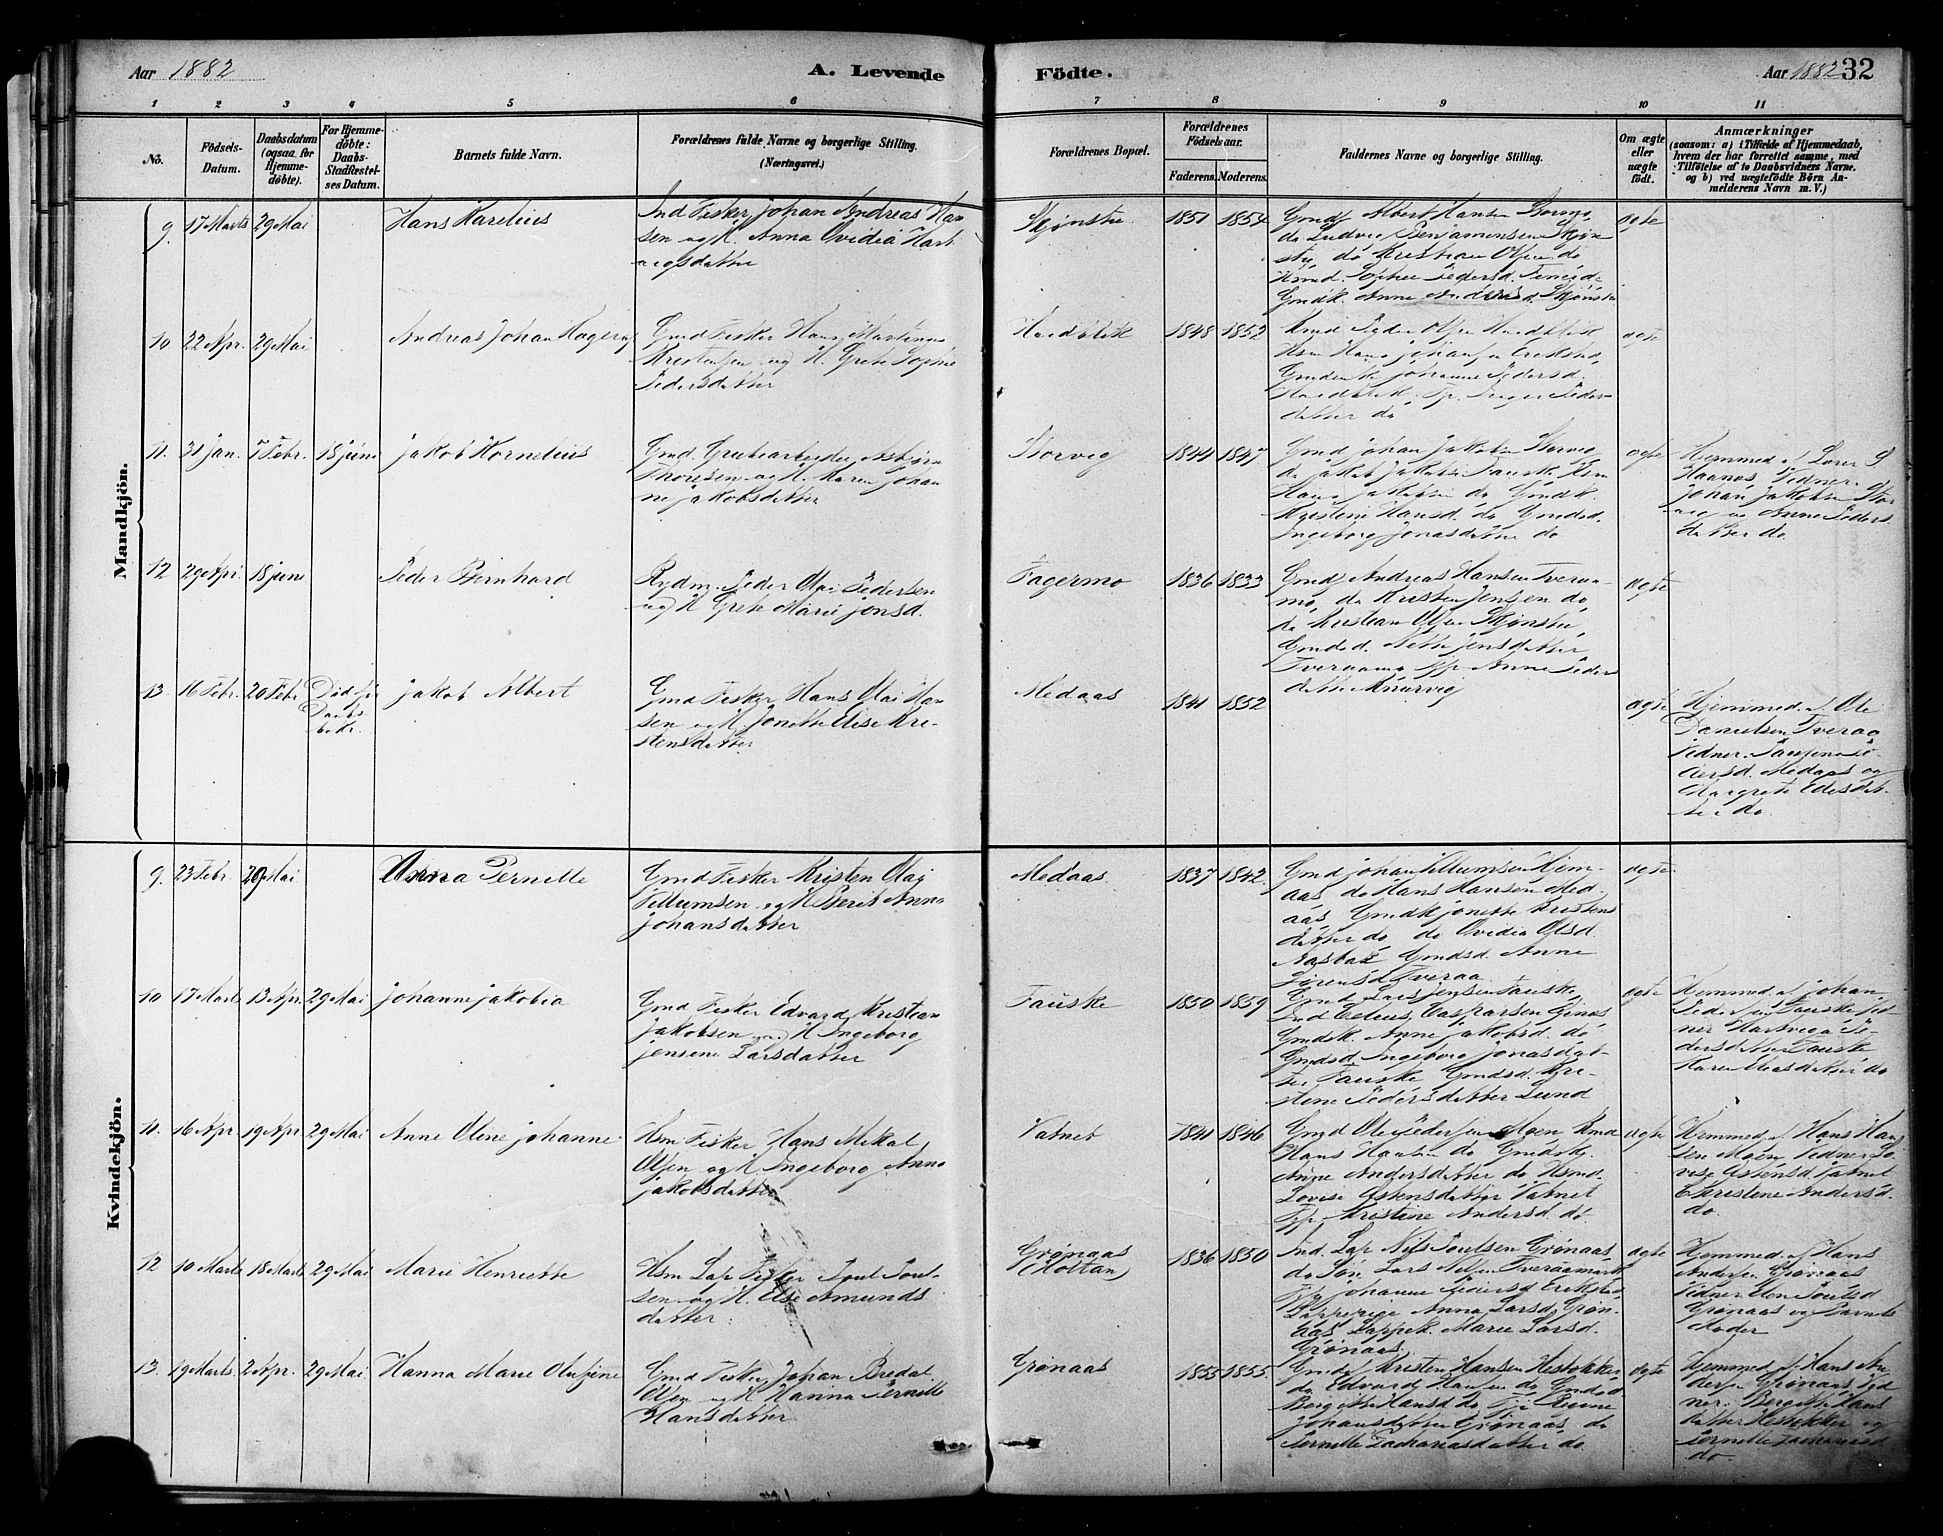 Aar 1882
A. Levende
Födte.
Aar 1882
32
1 2 3 4 5 6 7 8 9 10 11
No.
Födsels-
Datum.
Daabsdatum
(ogsaa for
Hjemme-
døbte).
For Hjemme-
døbte:
Daabs-
Stadfæstel-
ses Datum.
Barnets fulde Navn.
Forældrenes fulde Navne og borgerlige Stilling.
(Næringsvei.)
Forældrenes Bopæl.
Forældrenes
Födselsaar.
Faderens. Moderens.
Faddernes Navne og borgerlige Stilling.
Om ægte
eller
uægte
födt.
Anmærkninger
(saasom: a) i Tilfælde af Hjemmedaab,
hvem der har forrettet samme, med
Tilföielse af to Daabsvidners Navne.
og b) ved uægtefödte Börn An-
melderens Navn m. V.)
Mandkjön.
9. 17 Marts 29 Mai
Hans Karelius
Ind Fisker Johan Andreas Han
sen og H. Anna Ovidia Hart
vigsdatter
Skjønstu
1851 1854
Gmd Albert Hansen
do Ludvig Benjaminsen Skjøn
stu, do Kristian Olsen do
Gmdk. Anne Andersd. Skjønstu
ægte
10 22 Apr. 29 Mai
Andreas Johan Hagerup
Gmd Fisker Hans Martinus
Kristensen og H. Grete Sophie
Pedersdatter
1848 1852
Peder Olsen
Hsm Hans Johansen Erikstad,
Johanne Pedersd.
datter do
ægte
11. 31 Jan. 7 Febr. 18 Juni
Jakob Kornelius
Gmd. Grubearbeider Asbjørn
Thoresen og H. Maren Johan
ne Jakobsdatter
Storvig
1844 1847
Gmd Johan Jakobsen Storvig
do Jakob Jakobsen Fauske Hsm
Hans Jakobsen do Gmdk.
Kristine Hansd. do Gmdsd.
Ingeborg Jonasdatter do
ægte
Hjemmed. af Lærer S
Haanes, Vidner
Johan Jakobsen Stor
vig og Anne Peders
datter do
12 29 Apr. 18 Juni
Peder Bernhard
Rydm. Peder Olai Pedersen
og H Grete Marie Jonsd.
Fagermo
1836 1833
Gmd Andreas Hansen Tveraa-
mo, do Kristen Jensen do
do Kristian Olsen Skjønstu,
Gmdsd. Jensdatter
Tveraamo Anne Peders
datter
ægte
13. 16 Febr. 20 Febr
Død før
Daabs-
bekr.
Jakob Albert
Gmd Fisker Hans Olai Han
sen og H. Jonette Elise Kri
stensdatter
Medaas
1841 1852
ægte
Hjemmed. af Ole
Danielsen Tveraa
Vidner
Medaas og
Margrete
do.
Kvindekjön.
9. 23 Febr. 29 Mai
Anna Pernelle
Gmd Fisker Kristen Olai
Tillumsen og H Berit Anna
Johansdatter
Medaas
1837 1842
Gmd Johan Tillumsen Hjem-
aas do Hans Hansen Med-
aas Gmdk Jonette Kristens
datter do do Ovidia Olsd.
Gmdsd. Anne
Sørensd Tveraa
ægte
10 17 Marts 13 Apr. 29 Mai
Johanne Jakobia
Gmd Fisker Edvard Kristian
Jakobsen og H Ingeborg
Jensine Larsdatter
Fauske
1850 1859
Gmd Lars Jensen Fauske,
Ind Casparsen
Gmdsk. Anne Jakobsd. do
Gmdsd Ingeborg Jonasdat-
ter Fauske Gmdsd. Kri-
stene Pedersdatter Lund
ægte
Hjemmed. af Johan
Pedersen Fauske Vid
ner Hartvigd Pe-
dersdatter Fauske
Karen Eliasdatter do
11. 16 Apr 19 Apr 29 Mai
Anne Oline Johanne
Hsm Fisker Hans Mikal
Olsen og H. Ingeborg Anna
Jakobsdatter
Vatnet
1841 1846
Gmd Ole Pedersen Moen
Hans Hansen do Gmdsk.
Anne Andersdatter do Hsmd.
Lovise Estensdatter Vatnet
Kristine Andersd. do
ægte
Hjemmed. af Hans Han
sen Moen, Vidner Lo-
vise Estensd Vatnet
Christene Andersd.
do
12 10 Marts 18 Marts 29 Mai
Marie Henriette
Hsm Lap Fisker Poul Poul-
sen og H. Else Amunds
datter.
Grønaas
1836 1850
Ind. Lap Nils Poulsen Grønaas
do Søn Lars Nilsen Tveraamark
Johanne Pedersd Erikstad
Lappepige Anna Larsd. Grøn-
aas Lappek. Marie Larsd.
Grønaas
ægte
Hjemmed. af Hans
Andersen Grønaas
Vidner Elen Poulsd
Grønaas og Barnets
Moder
13. 19 Marts 2 Apr. 29 Mai
Hanna Marie
Gmd Fisker Johan Bredal
Olsen og H Hanna Pernelle
Hansdatter
Grønaas
1855 1855
Gmd Kristen Hansen
do Edvard Hansen do Gmdsd
Bergitte Hansd do
Johansdatter Grønaas, do
Pernelle Zachariasdatter do
ægte
Hjemmed af Hans An
dersen Grønaas Vid
ner. Bergitte Hans
datter og
Pernelle Zachariasd
do